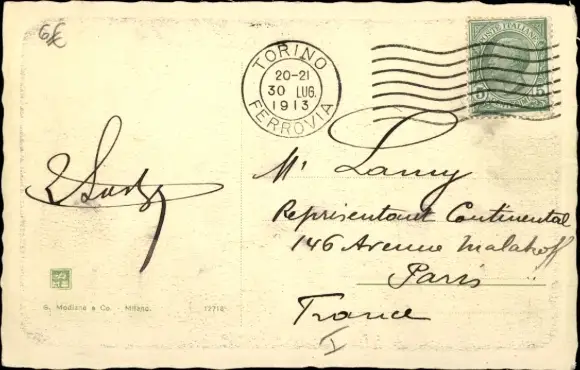 6€
TORINO
20-21
30 LUG.
1913
FERROVIA
POSTE ITALIANE
5 5
Mr. Lamy
Représentant Continental
146 Avenue Malakoff
Paris
France
I
G. Modiano e Co. Milano. 12718